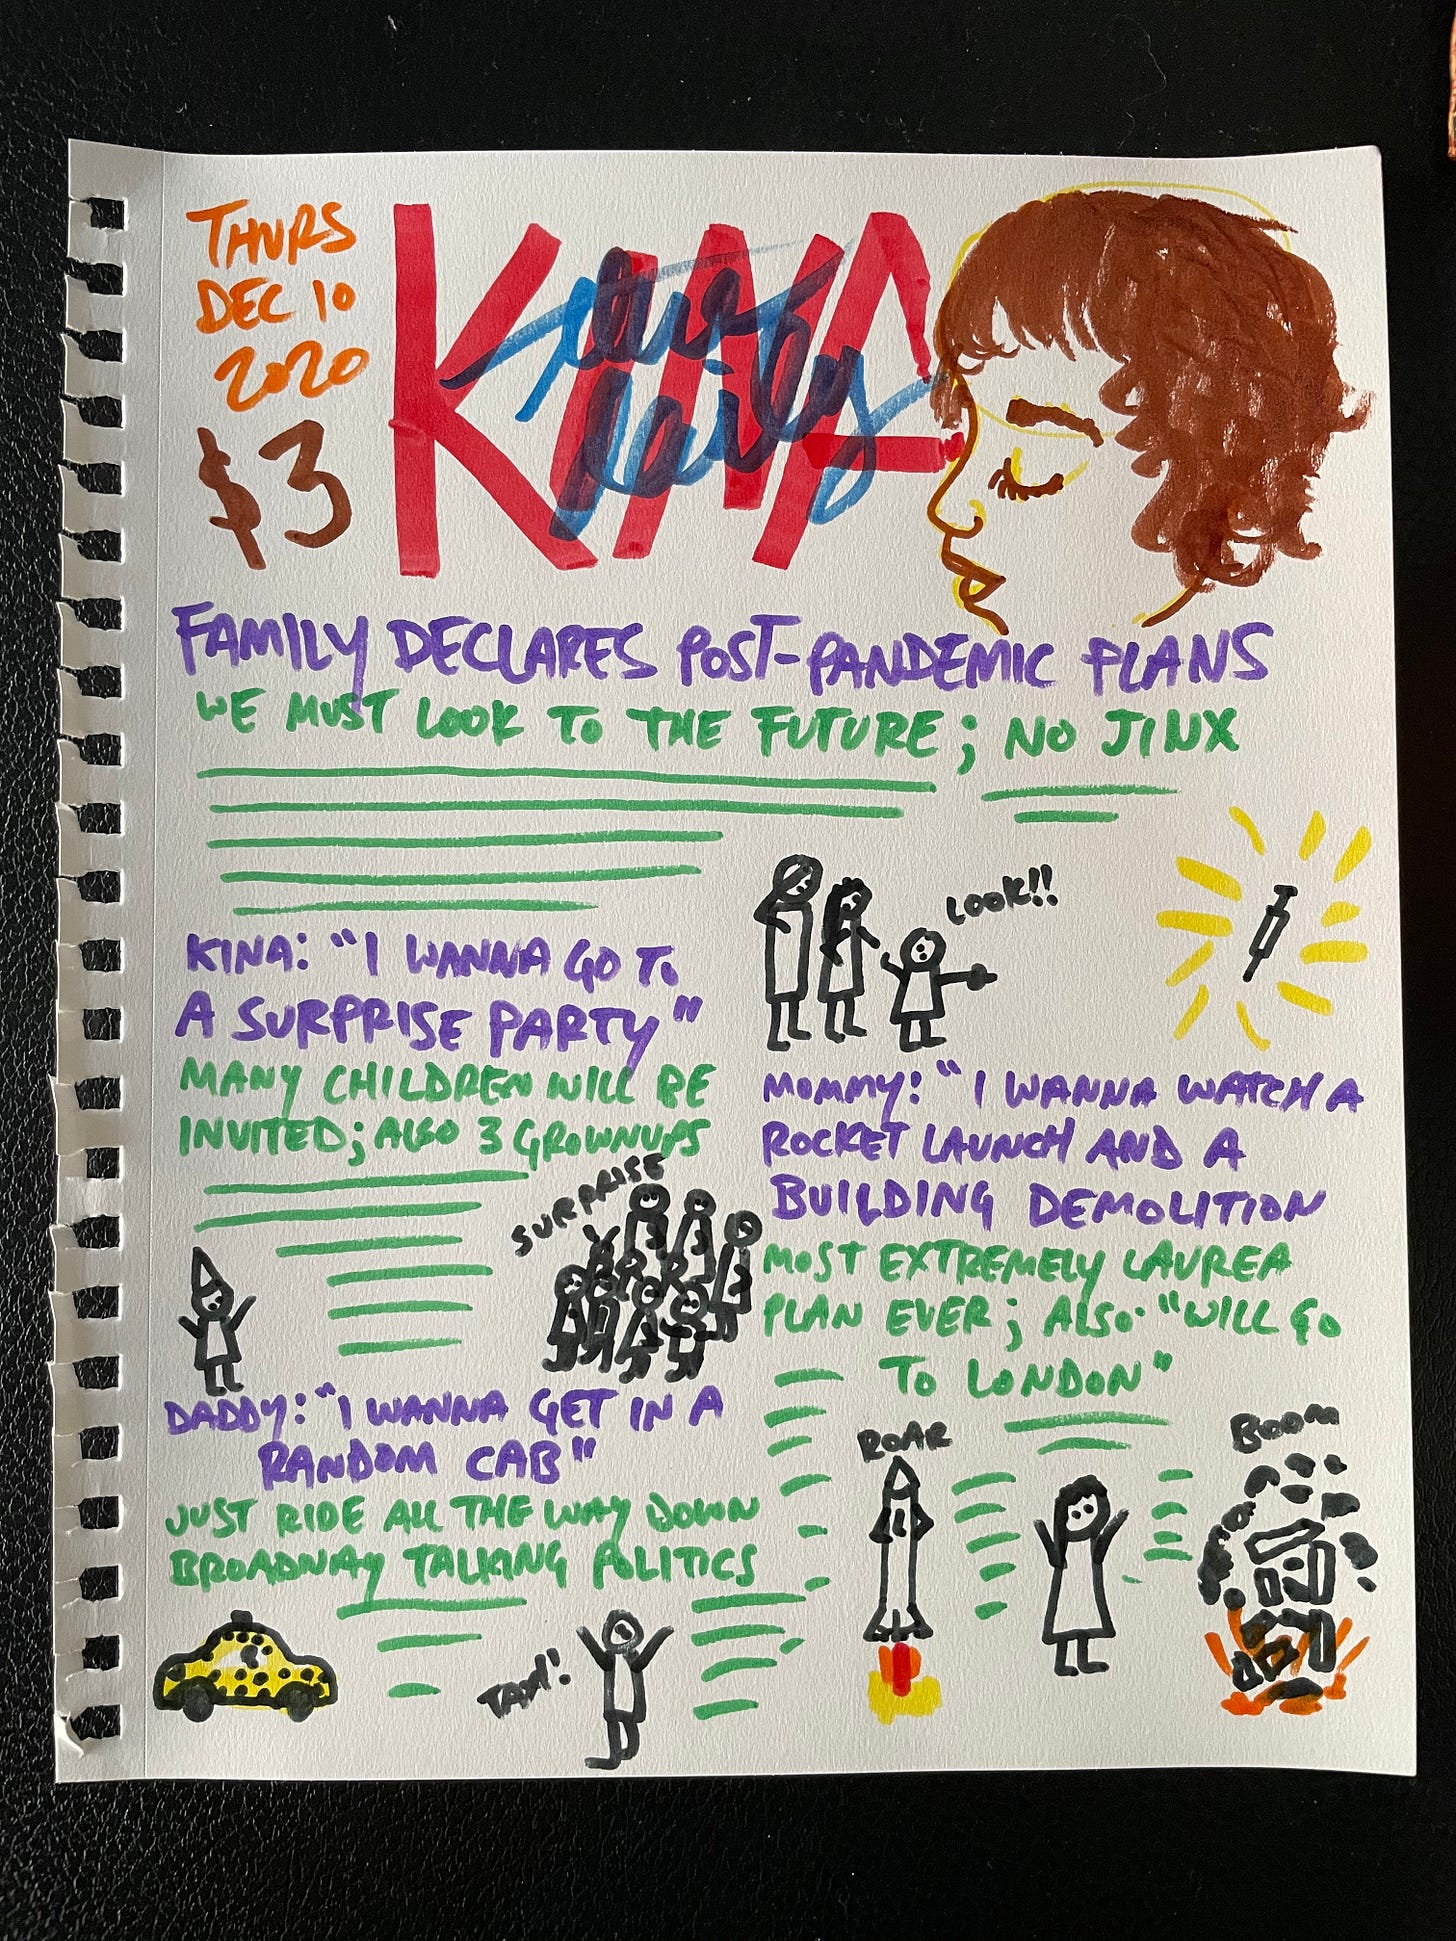 THURS
DEC 10
2020
$3
KINA
daily
FAMILY DECLARES POST-PANDEMIC PLANS
WE MUST LOOK TO THE FUTURE; NO JINX
LOOK!!
KINA: "I WANNA GO TO
A SURPRISE PARTY"
MANY CHILDREN WILL BE
INVITED; ALSO 3 GROWNUPS
SURPRISE
DADDY: "I WANNA GET IN A
RANDOM CAB"
JUST RIDE ALL THE WAY DOWN
BROADWAY TALKING POLITICS
TAXI!
MOMMY: "I WANNA WATCH A
ROCKET LAUNCH AND A
BUILDING DEMOLITION
MOST EXTREMELY LAUREA
PLAN EVER; ALSO: "WILL GO
TO LONDON"
ROAR
BOOM